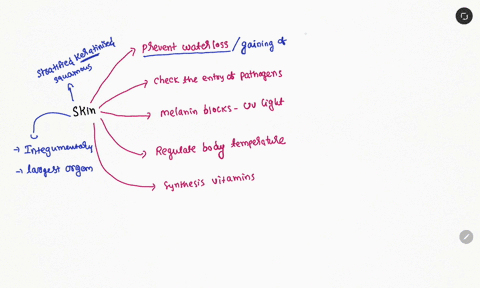 Stratified Keratinised
squamous
prevent water loss / gaining of
check the entry of pathogens
Skin
melanin blocks - UV light
→ Integumentary
→ largest organ
Regulate body temperature
Synthesis vitamins